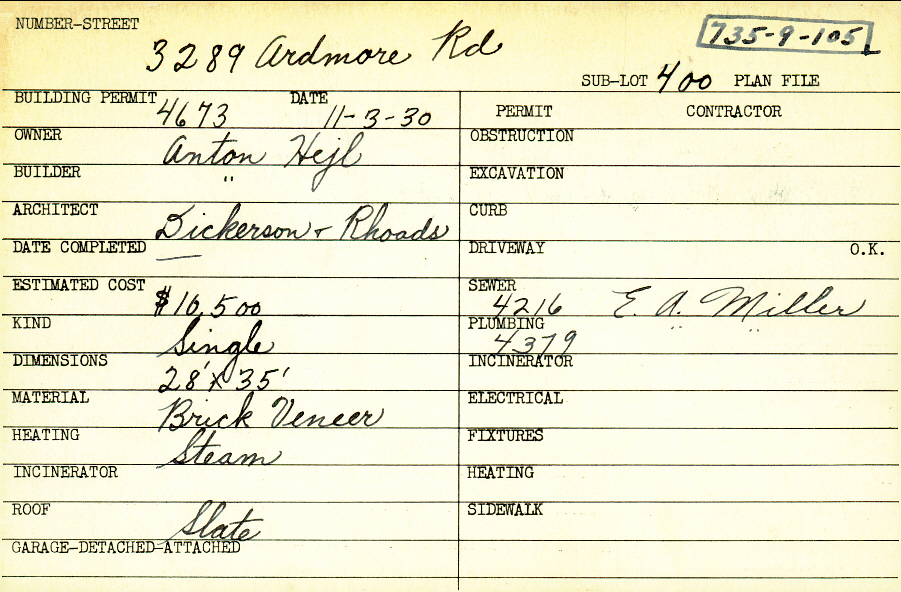 NUMBER-STREET
3289 Ardmore Rd
735-9-105
SUB-LOT 400 PLAN FILE
BUILDING PERMIT 4673 DATE 11-3-30
PERMIT CONTRACTOR
OWNER Anton Hejl
OBSTRUCTION
BUILDER "
EXCAVATION
ARCHITECT Dickerson + Rhoads
CURB
DATE COMPLETED —
DRIVEWAY O.K.
ESTIMATED COST $16,500
SEWER 4216 E. A. Miller
KIND Single
PLUMBING 4379 " "
DIMENSIONS 28' x 35'
INCINERATOR
MATERIAL Brick Veneer
ELECTRICAL
HEATING Steam
FIXTURES
INCINERATOR
HEATING
ROOF Slate
SIDEWALK
GARAGE-DETACHED-ATTACHED